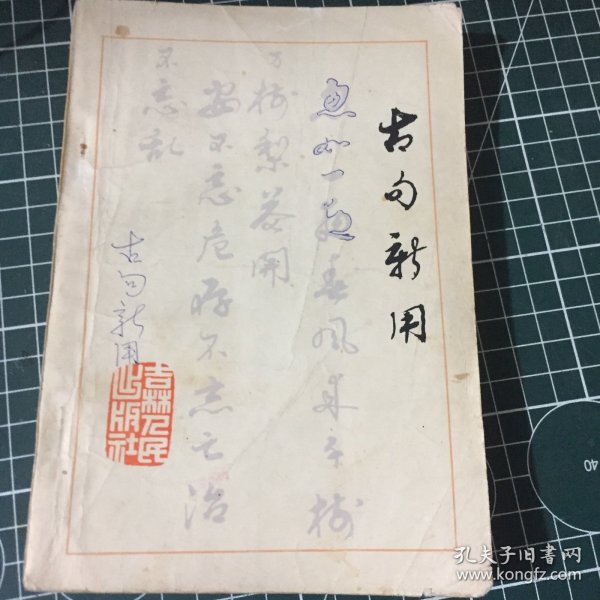 古句新用
忽如一夜春风来千树
万树梨花开
安不忘危存不忘亡治
不忘乱
古句新用
吉林人民
出版社
40
孔夫子旧书网
www.kongfz.com